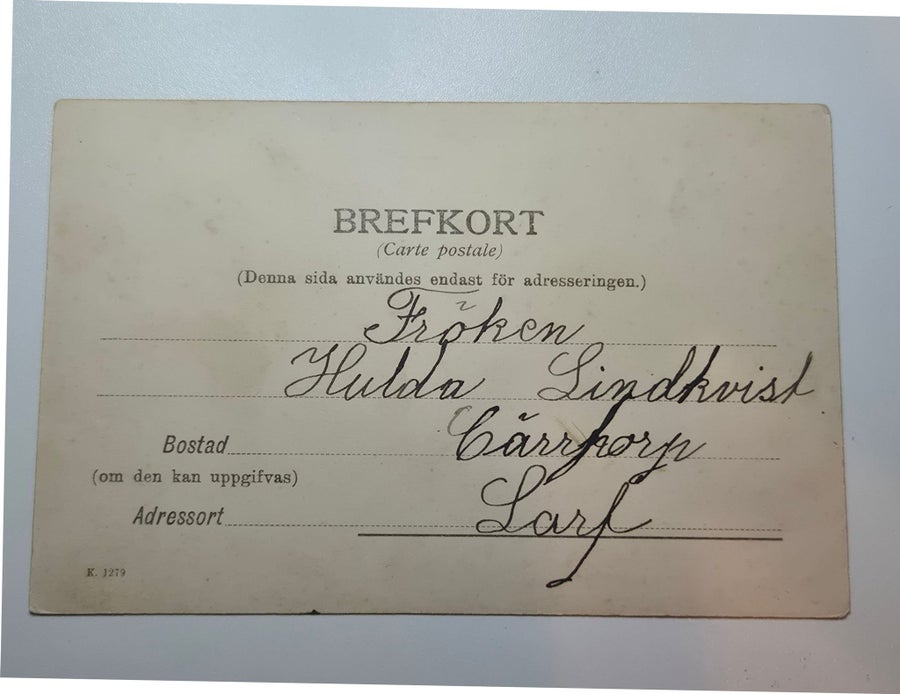 BREFKORT
(Carte postale)
(Denna sida användes endast för adresseringen.)
Fröken
Hulda Lindkvist
Bostad
(om den kan uppgifvas)
Adressort Larf
K. 1279